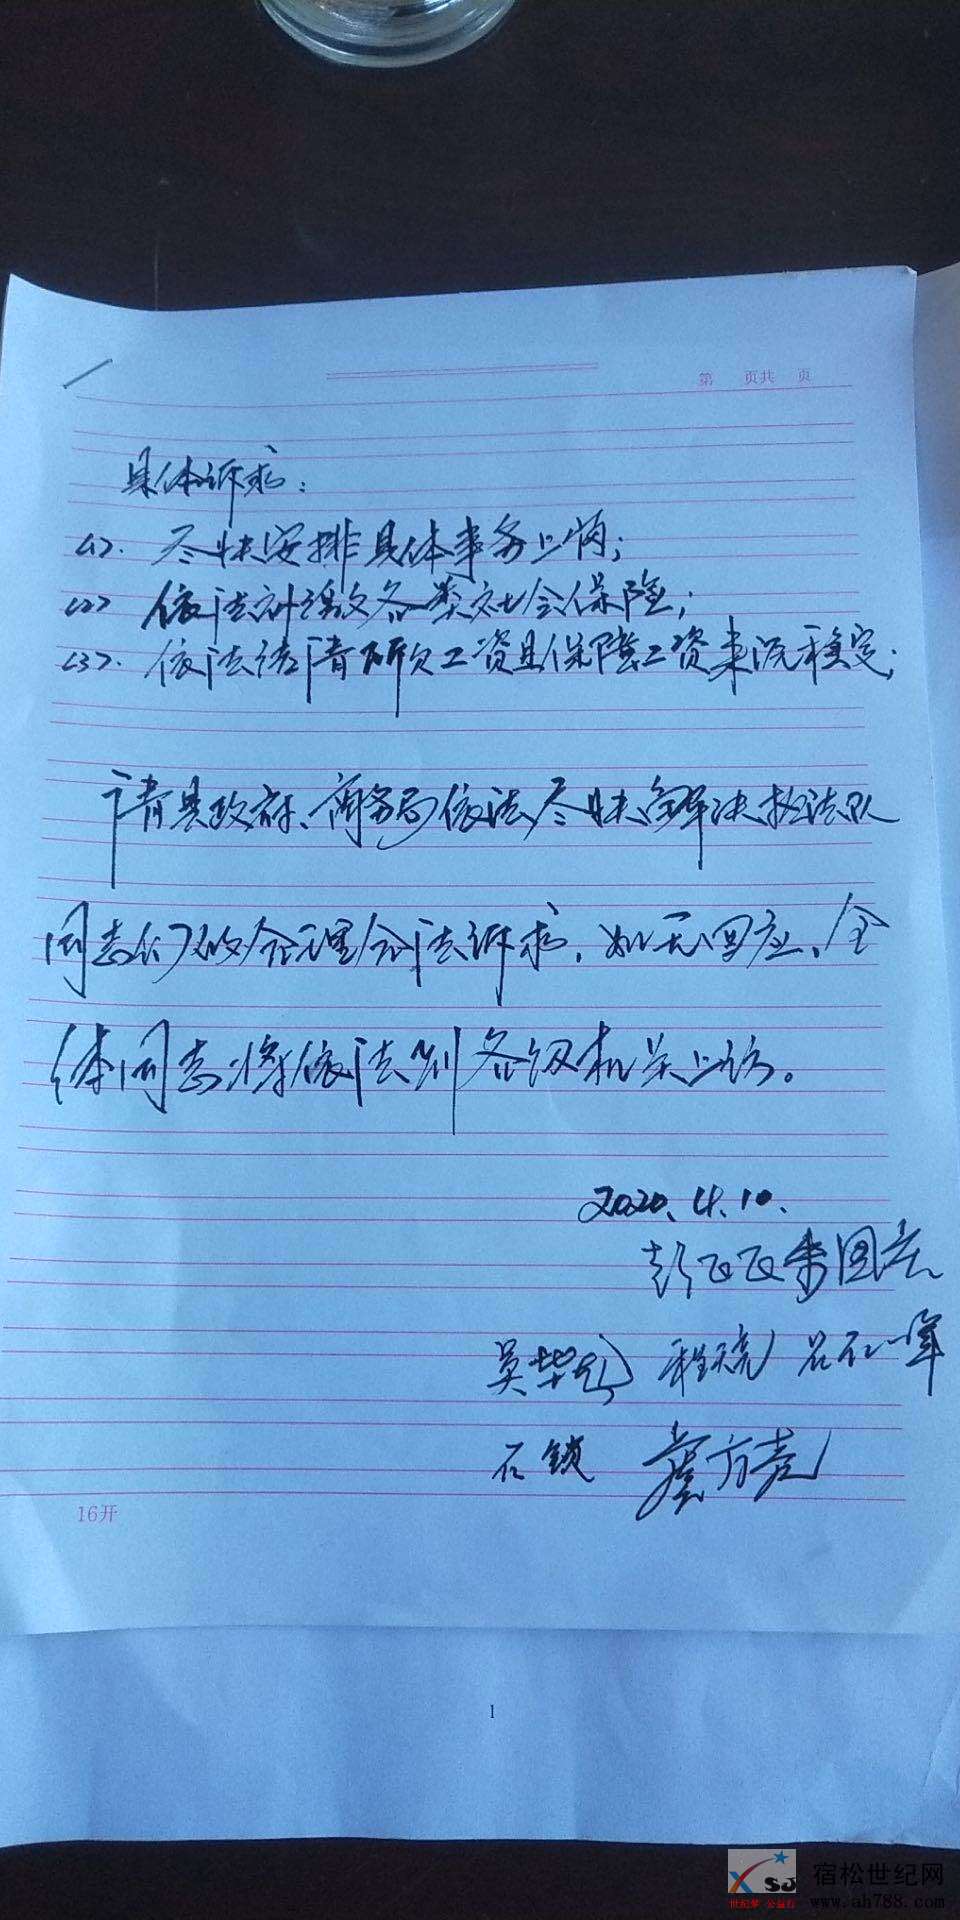 第 页共 页
具体诉求:
(1). 尽快安排具体事务上岗;
(2) 依法补缴各类社会保险;
(3). 依法清所欠工资且保障工资来源稳定;
请县政府、商务局依法尽快解决执法队
同志们的合理合法诉求,如无回应、全
体同志将依法到各级机关上访。
2020.4.10.
彭飞飞 国
吴 程 石一军
石锁 方
16开
1
世纪梦 公益行
SJ
宿松世纪网
www.ah788.com